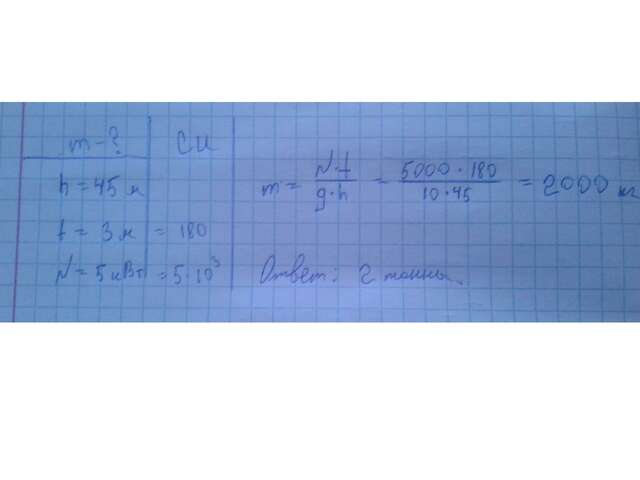 m - ? СИ
h = 45 м
t = 3 м = 180
N = 5 кВт = 5·10³
m = N·t / g·h = 5000·180 / 10·45 = 2000 кг
Ответ: 2 тонны.